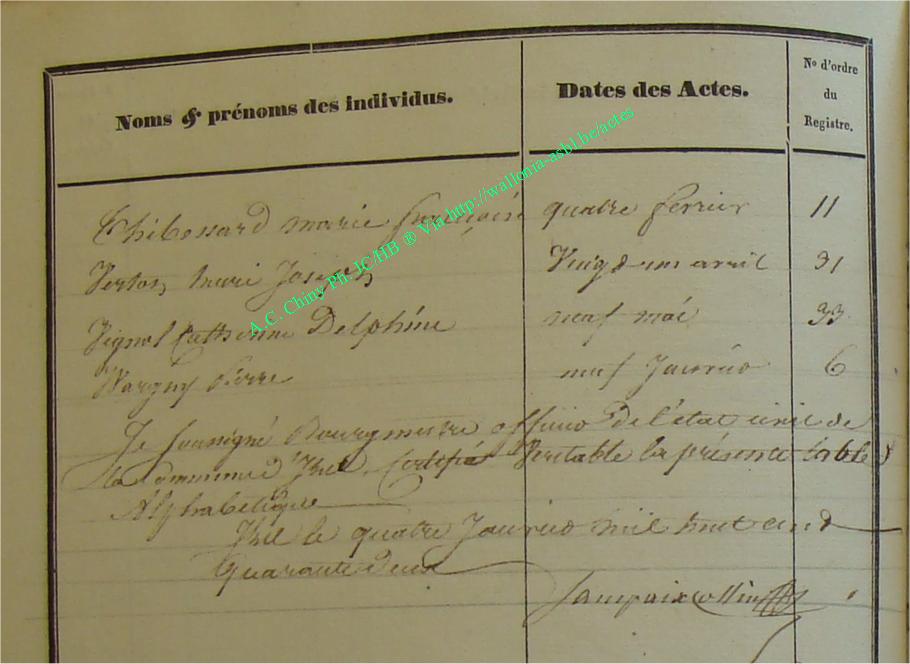 Noms & prénoms des individus.
Dates des Actes.
Nº d'ordre
du
Registre.
A.C. Chiny Ph-JC/HB ® Via http://wallonia-asbl.be/actes
Thibessard marie françoise quatre fevrier 11
marie Joseph Vingt un avril 31
Vignol Catherine Delphine neuf mai 33
Wargny Pierre neuf Janvier 6
Je soussigné Bourgmestre officier de l'état civil de
la Commune d'Izel Certifie Veritable la présente table
Alphabétique
Izel le quatre Janvier mil huit cent
Quarante deux